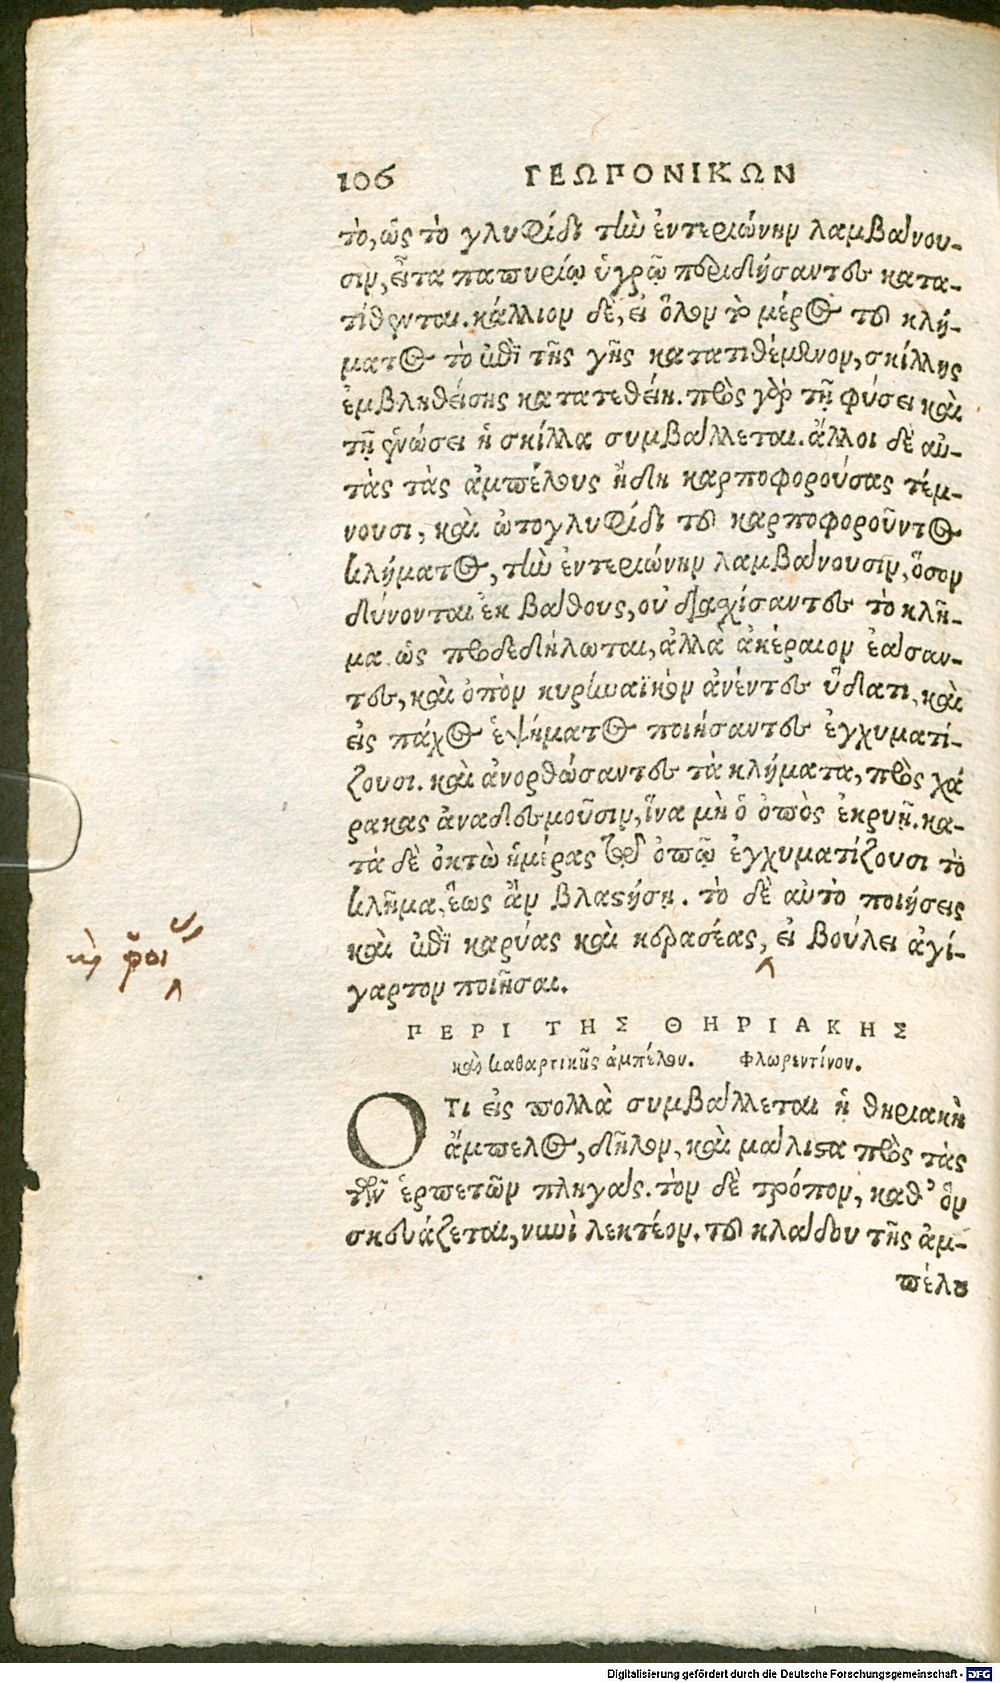 106 ΓΕΩΠΟΝΙΚΩΝ
το, ὡς τὸ γλυφίδι τὴν ἐντεριώνην λαμβάνου-
σιν, εἶτα παπυρίῳ ὑγρῷ περιδήσαντες κατα-
τίθενται. κάλλιον δὲ, εἰ ὅλον τὸ μέρος τοῦ κλή-
ματος τὸ ἐπὶ τῆς γῆς κατατιθέμενον, σκίλλης
ἐμβληθείσης κατατεθείη. πρὸς γὰρ τῇ φύσει καὶ
τῇ ἑνώσει ἡ σκίλλα συμβάλλεται. ἄλλοι δὲ αὐ-
τὰς τὰς ἀμπέλους ἤδη καρποφορούσας τέμ-
νουσι, καὶ ὠτογλυφίδι τοῦ καρποφοροῦντος
κλήματος, τὴν ἐντεριώνην λαμβάνουσιν, ὅσον
δύνονται ἐκ βάθους, οὐ διαχίσαντες τὸ κλῆ-
μα ὡς προδεδήλωται, ἀλλὰ ἀκέραιον ἐάσαν-
τες, καὶ ὀπὸν κυρηναϊκὸν ἀνέντες ὕδατι, καὶ
εἰς πάχος ἑψήματος ποιήσαντες ἐγχυματί-
ζουσι. καὶ ἀνορθώσαντες τὰ κλήματα, πρὸς χά
ρακας ἀναδεσμοῦσιν, ἵνα μὴ ὁ ὀπὸς ἐκρυῇ. κα-
τὰ δὲ ὀκτὼ ἡμέρας τῷ ὀπῷ ἐγχυματίζουσι τὸ
κλῆμα, ἕως ἂν βλαστήσῃ. τὸ δὲ αὐτὸ ποιήσεις
καὶ ἐπὶ καρύας καὶ κερασέας, εἰ βούλει ἀγί-
γαρτον ποιῆσαι.
ΠΕΡΙ ΤΗΣ ΘΗΡΙΑΚΗΣ
καὶ καθαρτικῆς ἀμπέλου. Φλωρεντίνου.
ΟΤΙ εἰς πολλὰ συμβάλλεται ἡ θηριακὴ
ἄμπελος, δῆλον, καὶ μάλιστα πρὸς τὰς
τῶν ἑρπετῶν πληγάς. τὸν δὲ τρόπον, καθ' ὃν
σκευάζεται, νυνὶ λεκτέον. τοῦ κλάδου τῆς ἀμ-
πέλου
Digitalisierung gefördert durch die Deutsche Forschungsgemeinschaft - DFG